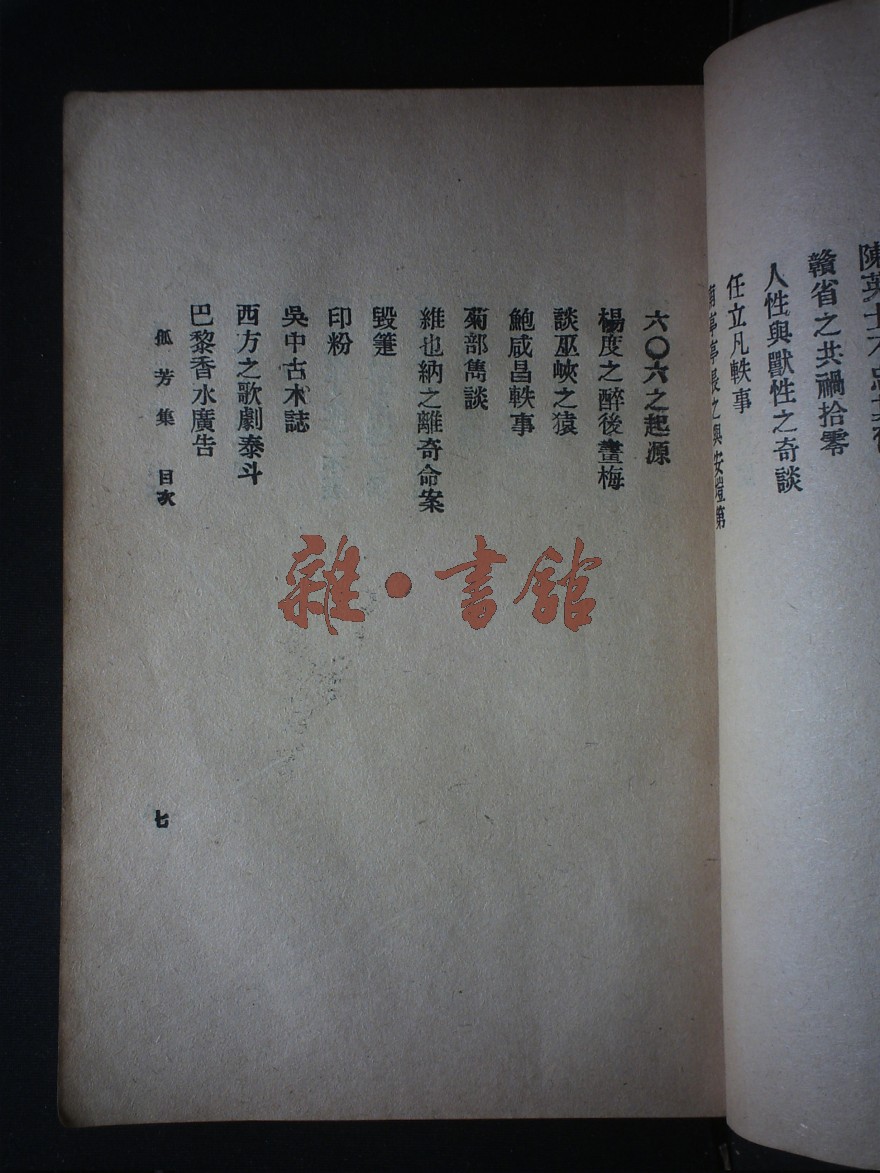 贛省之共禍拾零
人性與獸性之奇談
任立凡軼事
六〇六之起源
楊度之醉後畫梅
談巫峽之猿
鮑咸昌軼事
菊部雋談
維也納之離奇命案
毀箑
印粉
吳中古木誌
西方之歌劇泰斗
巴黎香水廣告
孤芳集 目次
七
雜·書館